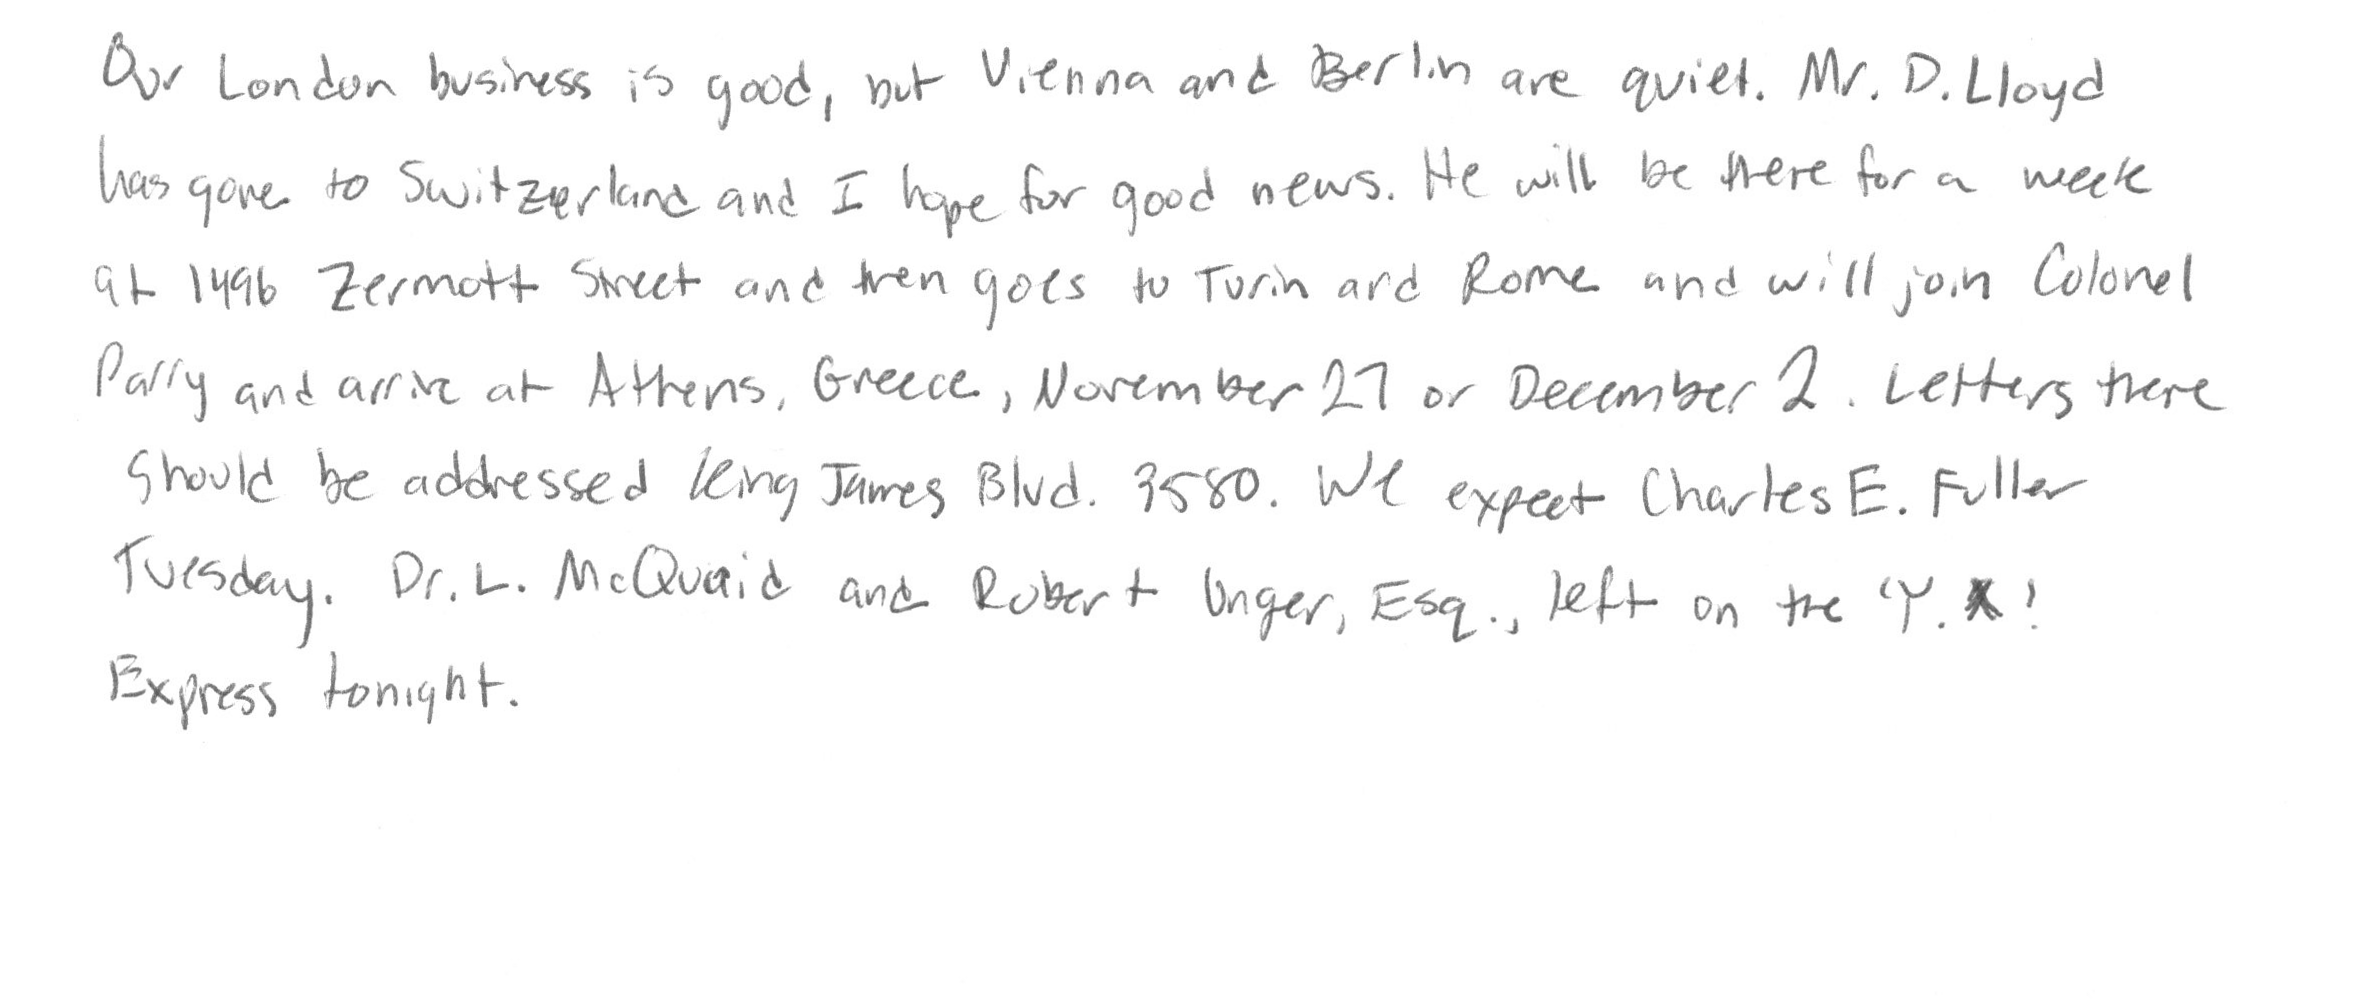 Our London business is good, but Vienna and Berlin are quiet. Mr. D. Lloyd
has gone to Switzerland and I hope for good news. He will be there for a week
at 1496 Zermott Street and then goes to Turin and Rome and will join Colonel
Parry and arrive at Athens, Greece, November 27 or December 2. Letters there
should be addressed King James Blvd. 3580. We expect Charles E. Fuller
Tuesday. Dr. L. McQuaid and Robert Unger, Esq., left on the 'Y. X'
Express tonight.